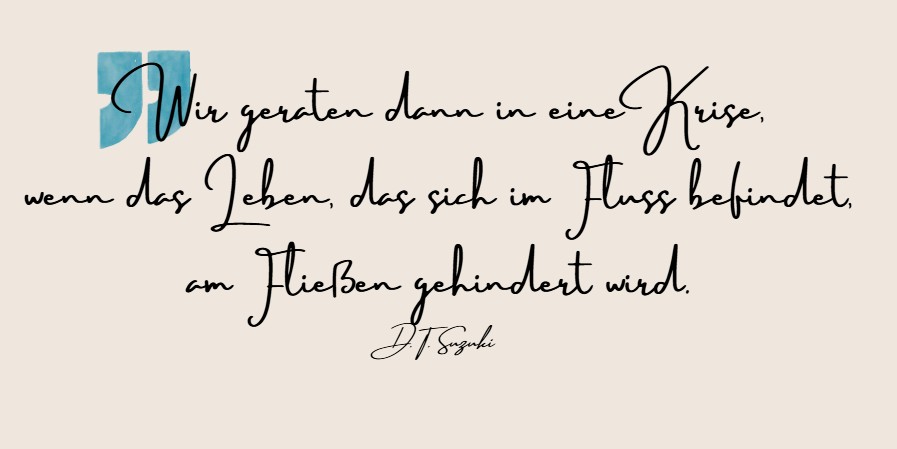 Wir geraten dann in eine Krise,
wenn das Leben, das sich im Fluss befindet,
am Fließen gehindert wird.
D.T. Suzuki